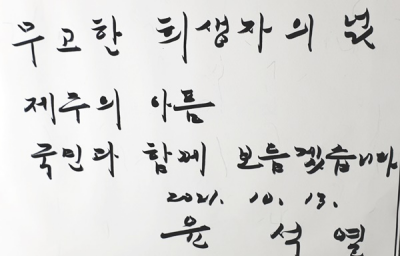 무고한 희생자의 넋
제주의 아픔
국민과 함께 보듬겠습니다
2021. 10. 13.
윤 석 열